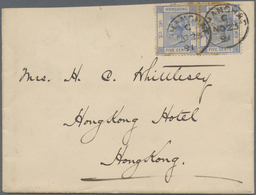 HONGKONG
FIVE CENTS FIVE CENTS
SHANGHAI
C
NO 24
91
Mrs. H. C. Whittlesey
Hongkong Hotel
Hongkong.